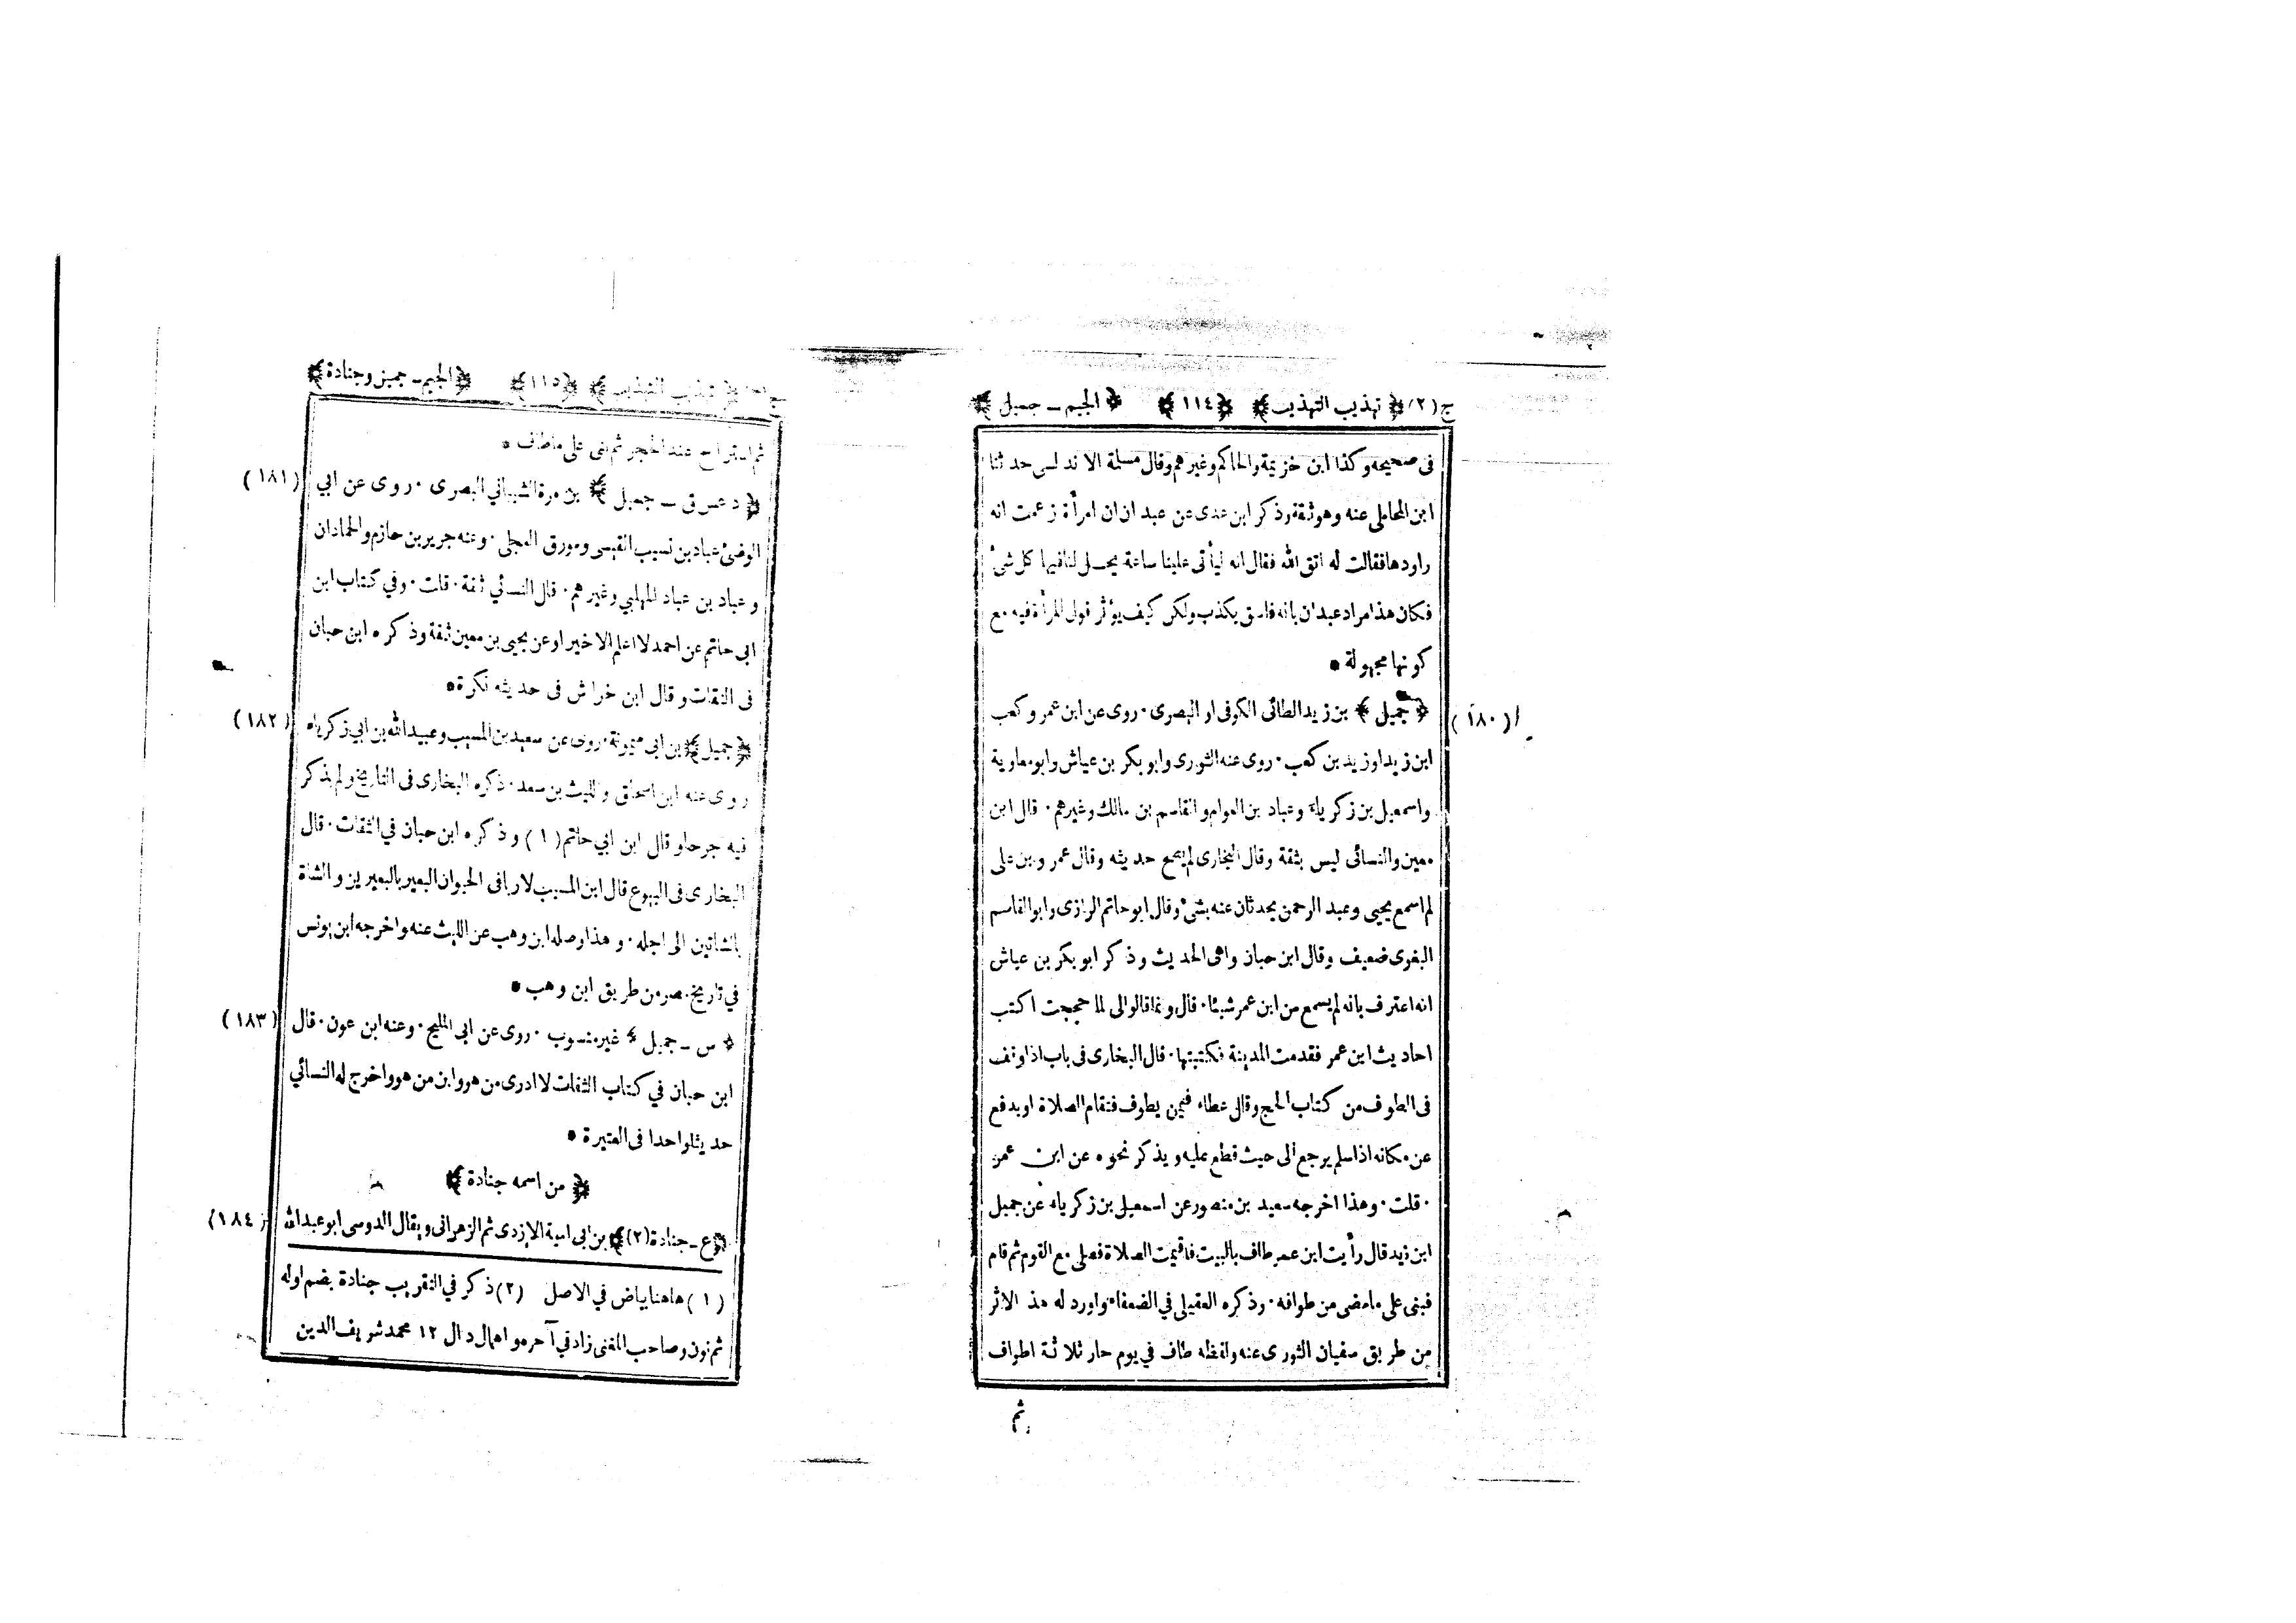 ج (٢) ﴿ تهذيب التهذيب ﴾ ﴿ ١١٤ ﴾ ﴿ الجيم ـ جميل ﴾
فى صحيحه وكذا ابن خزيمة والحاكم وغيرهم وقال مسلمة الاندلسى حدثنا
ابن المحاملى عنه وهو ثقة وذكر ابن عدى عن عبدان ان امرأة زعمت انه
راودها فقالت له اتق الله فقال انه ليأتى علينا ساعة يحل لنا فيها كل شئ
فكان هذا مراد عبدان بانه فاسق يكذب ولكن كيف يؤثر قول المرأة فيه مع
كونها مجهولة *
(١٨٠) ﴿ جميل ﴾ بن زيد الطائى الكوفى او البصرى · روى عن ابن عمر وكعب
ابن زيد او زيد بن كعب · روى عنه الثورى وابو بكر بن عياش وابو معاوية
واسمعيل بن زكرياء وعباد بن العوام والقاسم بن مالك وغيرهم · قال ابن
معين والنسائى ليس بثقة وقال البخارى لم يصح حديثه وقال عمرو بن على
لم اسمع يحيى وعبد الرحمن يحدثان عنه بشئ وقال ابو حاتم الرازى وابو القاسم
البغوى ضعيف وقال ابن حبان واهى الحديث وذكر ابو بكر بن عياش
انه اعترف بانه لم يسمع من ابن عمر شيئا · قال وانما قالوا لى لما حججت اكتب
احاديث ابن عمر فقدمت المدينة فكتبتها · قال البخارى فى باب اذا وقف
فى الطوف من كتاب الحج وقال عطاء فيمن يطوف فتقام الصلاة او يدفع
عن مكانه اذا سلم يرجع الى حيث قطع عليه ويذكر نحوه عن ابن عمر
· قلت · وهذا اخرجه سعيد بن منصور عن اسمعيل بن زكرياء عن جميل
ابن زيد قال رأيت ابن عمر طاف بالبيت فاقيمت الصلاة فصلى مع القوم ثم قام
فبنى على ما مضى من طوافه · وذكره العقيلى في الضعفاء واورد له هذ الاثر
من طريق سفيان الثورى عنه ولفظه طاف في يوم حار ثلاثة اطواف
ثم
﴿ تهذيب التهذيب ﴾ ﴿ ١١٥ ﴾ ﴿ الجيم ـ جميل وجنادة ﴾
ثم استراح عند الحجر ثم بنى على ما طاف *
(١٨١) ﴿ د عس ق ـ جميل ﴾ بن مرة الشيباني البصرى · روى عن ابي
الوضئ عباد بن نسيب القيسى ومورق العجلى · وعنه جرير بن حازم والحمادان
وعباد بن عباد المهلبي وغيرهم · قال النسائي ثقة · قلت · وفي كتاب ابن
ابى حاتم عن احمد لا اعلم الا خيرا وعن يحيى بن معين ثقة وذكره ابن حبان
فى الثقات وقال ابن خراش فى حديثه نكرة *
(١٨٢) ﴿ جميل ﴾ بن ابى ميمونة · روى عن سعيد بن المسيب وعبيد الله بن ابي زكرياء
روى عنه ابن اسحاق والليث بن سعد · ذكره البخارى فى التاريخ ولم يذكر
فيه جرحا وقال ابن ابي حاتم (١) وذكره ابن حبان في الثقات · قال
البخارى فى البيوع قال ابن المسيب لا ربا فى الحيوان البعير بالبعيرين والشاة
بالشاتين الى اجله · وهذا وصله ابن وهب عن الليث عنه واخرجه ابن يونس
في تاريخ مصر من طريق ابن وهب *
(١٨٣) ﴿ س ـ جميل ﴾ غير منسوب · روى عن ابى المليح · وعنه ابن عون · قال
ابن حبان في كتاب الثقات لا ادرى من هو وابن من هو واخرج له النسائي
حديثا واحدا فى العتيرة *
﴿ من اسمه جنادة ﴾
(١٨٤) ﴿ ع ـ جنادة (٢) ﴾ بن ابى امية الازدى ثم الزهرانى ويقال الدوسى ابو عبد الله
(١) هاهنا بياض في الاصل (٢) ذكر في التقريب جنادة بضم اوله
ثم نون وصاحب المغنى زاد في آخره واهمال دال ١٢ محمد شريف الدين